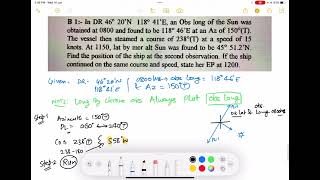 B 1:- In DR 46° 20'N 118° 41'E, an Obs long of the Sun was
obtained at 0800 and found to be 118° 46'E at an Az of 150°(T).
The vessel then steamed a course of 238°(T) at a speed of 15
knots. At 1150, lat by mer alt Sun was found to be 45° 51.2'N.
Find the position of the ship at the second observation. If the ship
continued on the same course and speed, state her EP at 1200.
Given:- DR - 46°20'N 0800hrs obs long - 118°46'E
118°41'E & Az = 150°(T)
Note: Long by chron obs Always Plot Obs long
Step-1 Azimuth = 150°(T)
PL = 060° 240°(T)
Co = 238°(T) S 58°W
238-180
Step-2 Run
obs
DR lat & long